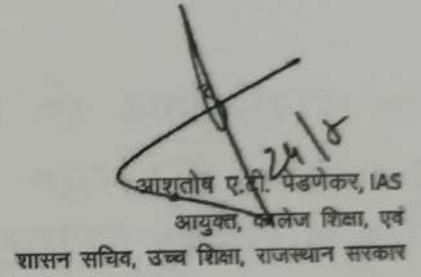 24/8
आशुतोष ए.टी. पेडणेकर, IAS
आयुक्त, कालेज शिक्षा, एवं
शासन सचिव, उच्च शिक्षा, राजस्थान सरकार